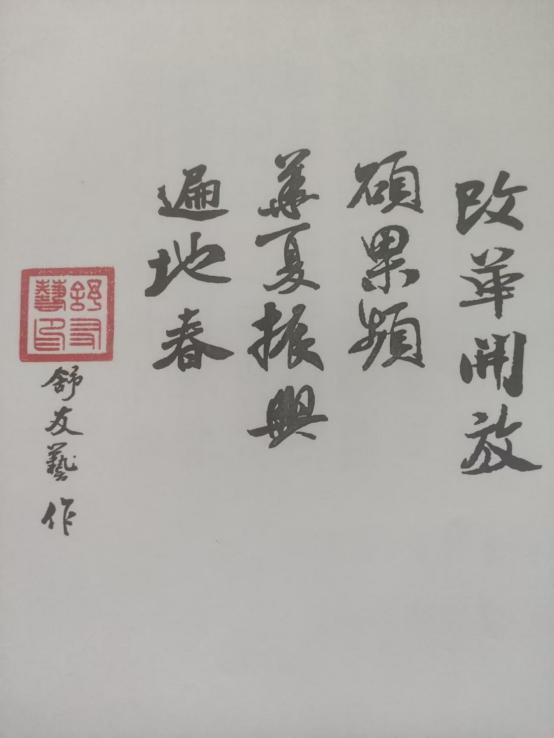 改革開放
碩果頻
華夏振興
遍地春
舒友藝作
舒友藝印